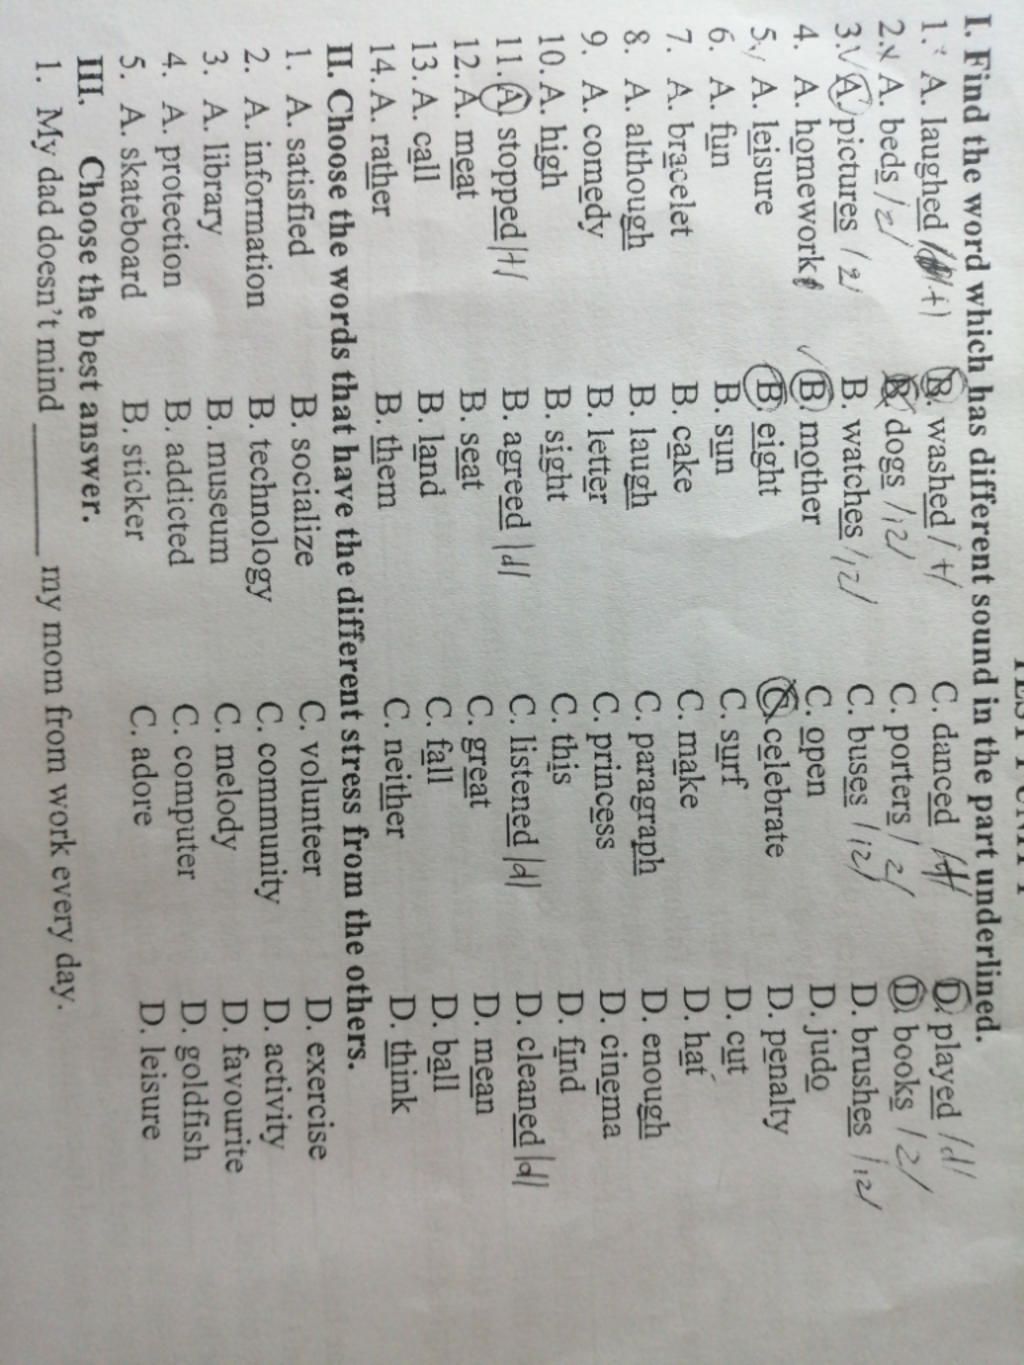 I. Find the word which has different sound in the part underlined.
1. A. laughed /t/ B. washed /t/ C. danced /t/ D. played /d/
2. A. beds /z/ B. dogs /iz/ C. porters /z/ D. books /z/
3. A. pictures /z/ B. watches /iz/ C. buses /iz/ D. brushes /iz/
4. A. homework B. mother C. open D. judo
5. A. leisure B. eight C. celebrate D. penalty
6. A. fun B. sun C. surf D. cut
7. A. bracelet B. cake C. make D. hat
8. A. although B. laugh C. paragraph D. enough
9. A. comedy B. letter C. princess D. cinema
10. A. high B. sight C. this D. find
11. A. stopped /t/ B. agreed /d/ C. listened /d/ D. cleaned /d/
12. A. meat B. seat C. great D. mean
13. A. call B. land C. fall D. ball
14. A. rather B. them C. neither D. think
II. Choose the words that have the different stress from the others.
1. A. satisfied B. socialize C. volunteer D. exercise
2. A. information B. technology C. community D. activity
3. A. library B. museum C. melody D. favourite
4. A. protection B. addicted C. computer D. goldfish
5. A. skateboard B. sticker C. adore D. leisure
III. Choose the best answer.
1. My dad doesn't mind ________ my mom from work every day.